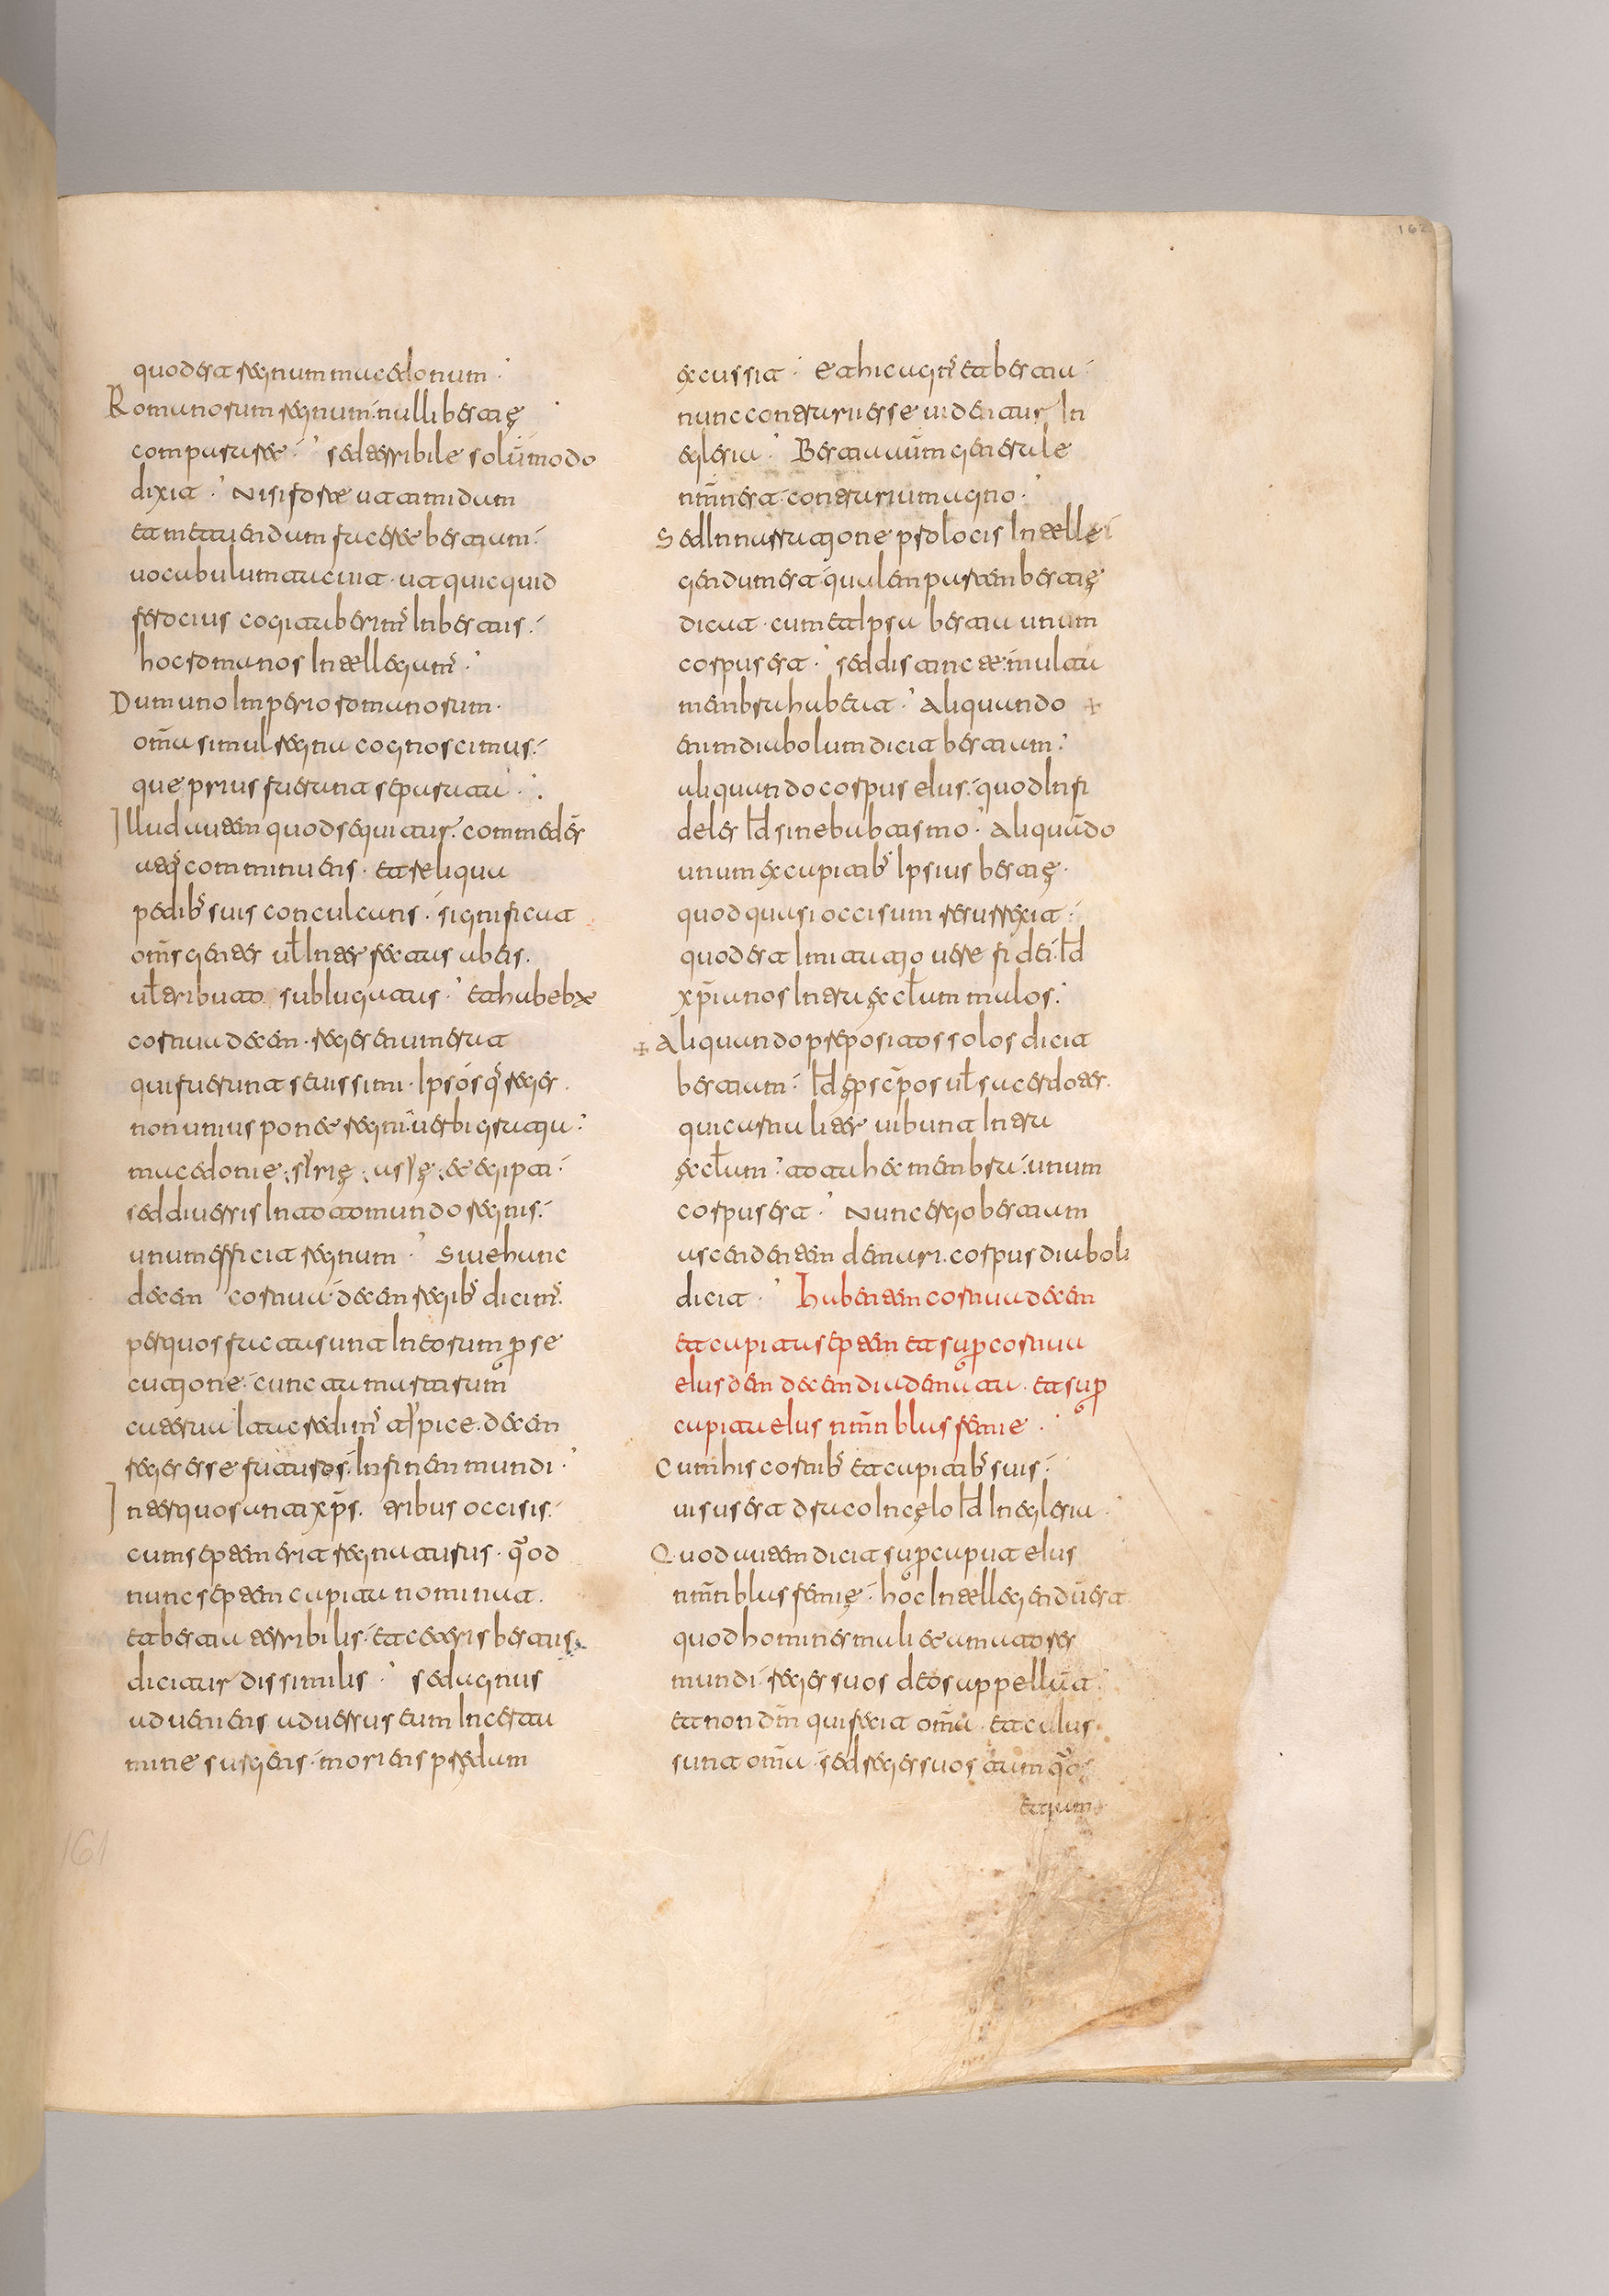 162
quod est regnum macedonum.
Romanorum regnum nulli bestię
conparare. sed terribile solūmodo
dixit. Nisi forte ut timidum
et metuendum faceret bestium.
uocabulum tacuit. ut quicquid
ferocius cogitauberimꝰ In bestiis.
hoc romanos Intellegamꝰ.
Dum uno Imperio romanorum.
omīa simul regna cognoscimus.
que prius fuerunt separata.
Illud autem quod sequitur. commedēs
atqꝫ comminuens. et reliqua
pedibꝰ suis conculcans. significat
omīs gentes ul̄ Interfectas ab eis.
ul̄ tributo subiugatas. et habebat
cornua decem. reges enumerat
qui fuerunt seuissimi. Ipsosqꝫ reges.
non unius ponet regni. uerbi gratia.
macedonie, sirię, asię, et egipti.
sed diuersis In toto mundo regnis.
unum efficit regnum. Siue hunc
decem cornua. decem regibꝰ dicimꝰ.
per quos facta sunt In eorum perse
cutione. cuncta martirum
caterua laureadimꝰ aspice. decem
reges esse futuros. In finem mundi.
In ter quos uenit xp̄s. tribus occisis.
cum septem erit regnaturus. quod
nunc septem capita nominat.
et bestia terribilis. et ceteris bestiis
dicitur dissimilis. sed agnus
adueniens aduersus eum In certa
mine surgens. moriens predam
161
excussit. et hic agnꝰ et bestia.
nunc contrarii esse uidentur In
eglesia. Bestia autem generale
nm̄n est. contrarium agno.
Sed In narratione pro locis Intelle
gendum est. qualem partem bestię
dicat. cum et Ipsa bestia unum
corpus est. sed distincte. multa
membra habeat. Aliquando
enim diabolum dicit bestium.
aliquando corpus eius. quod Infi
deles Id sine babtismo. Aliquādo
unum ex capitibꝰ Ipsius bestię.
quod quasi occisum resurrexit.
quod est Imitatio uere fidei. Id
xp̄ianos Intra eccl̄am malos.
Aliquando prepositos solos dicit
bestium. Id ępsc̄pos ul̄ sacerdotes.
qui carnaliter uibunt Intra
eccl̄am. tota hec membra. unum
corpus est. Nunc ergo bestium
ascendentem de mari. corpus diaboli
dicit. Habentem cornua decem
et capita septem et super cornua
eius dem decem diademata. et super
capita eius nm̄n blasfemie.
Cum his cornibꝰ et capitibꝰ suis.
uisus est draco In cęlo Id In eglesia.
Quod autem dicit super capita eius
nm̄n blasfemię. hoc Intellegendū est
quod homines mali et amatores
mundi. reges suos deos appellāt.
et non dm̄ qui fecit omīa. et cuius
sunt omīa. sed reges suos tamquā
etiam